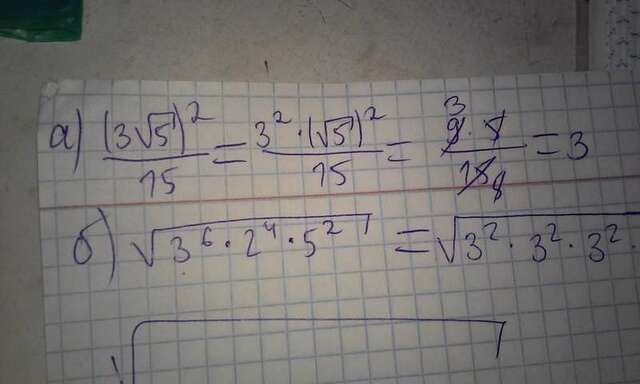 а) (3√5)²/15 = 3²·(√5)²/15 = 9·5/15 = 3
б) √3⁶·2⁴·5² = √3²·3²·3²·